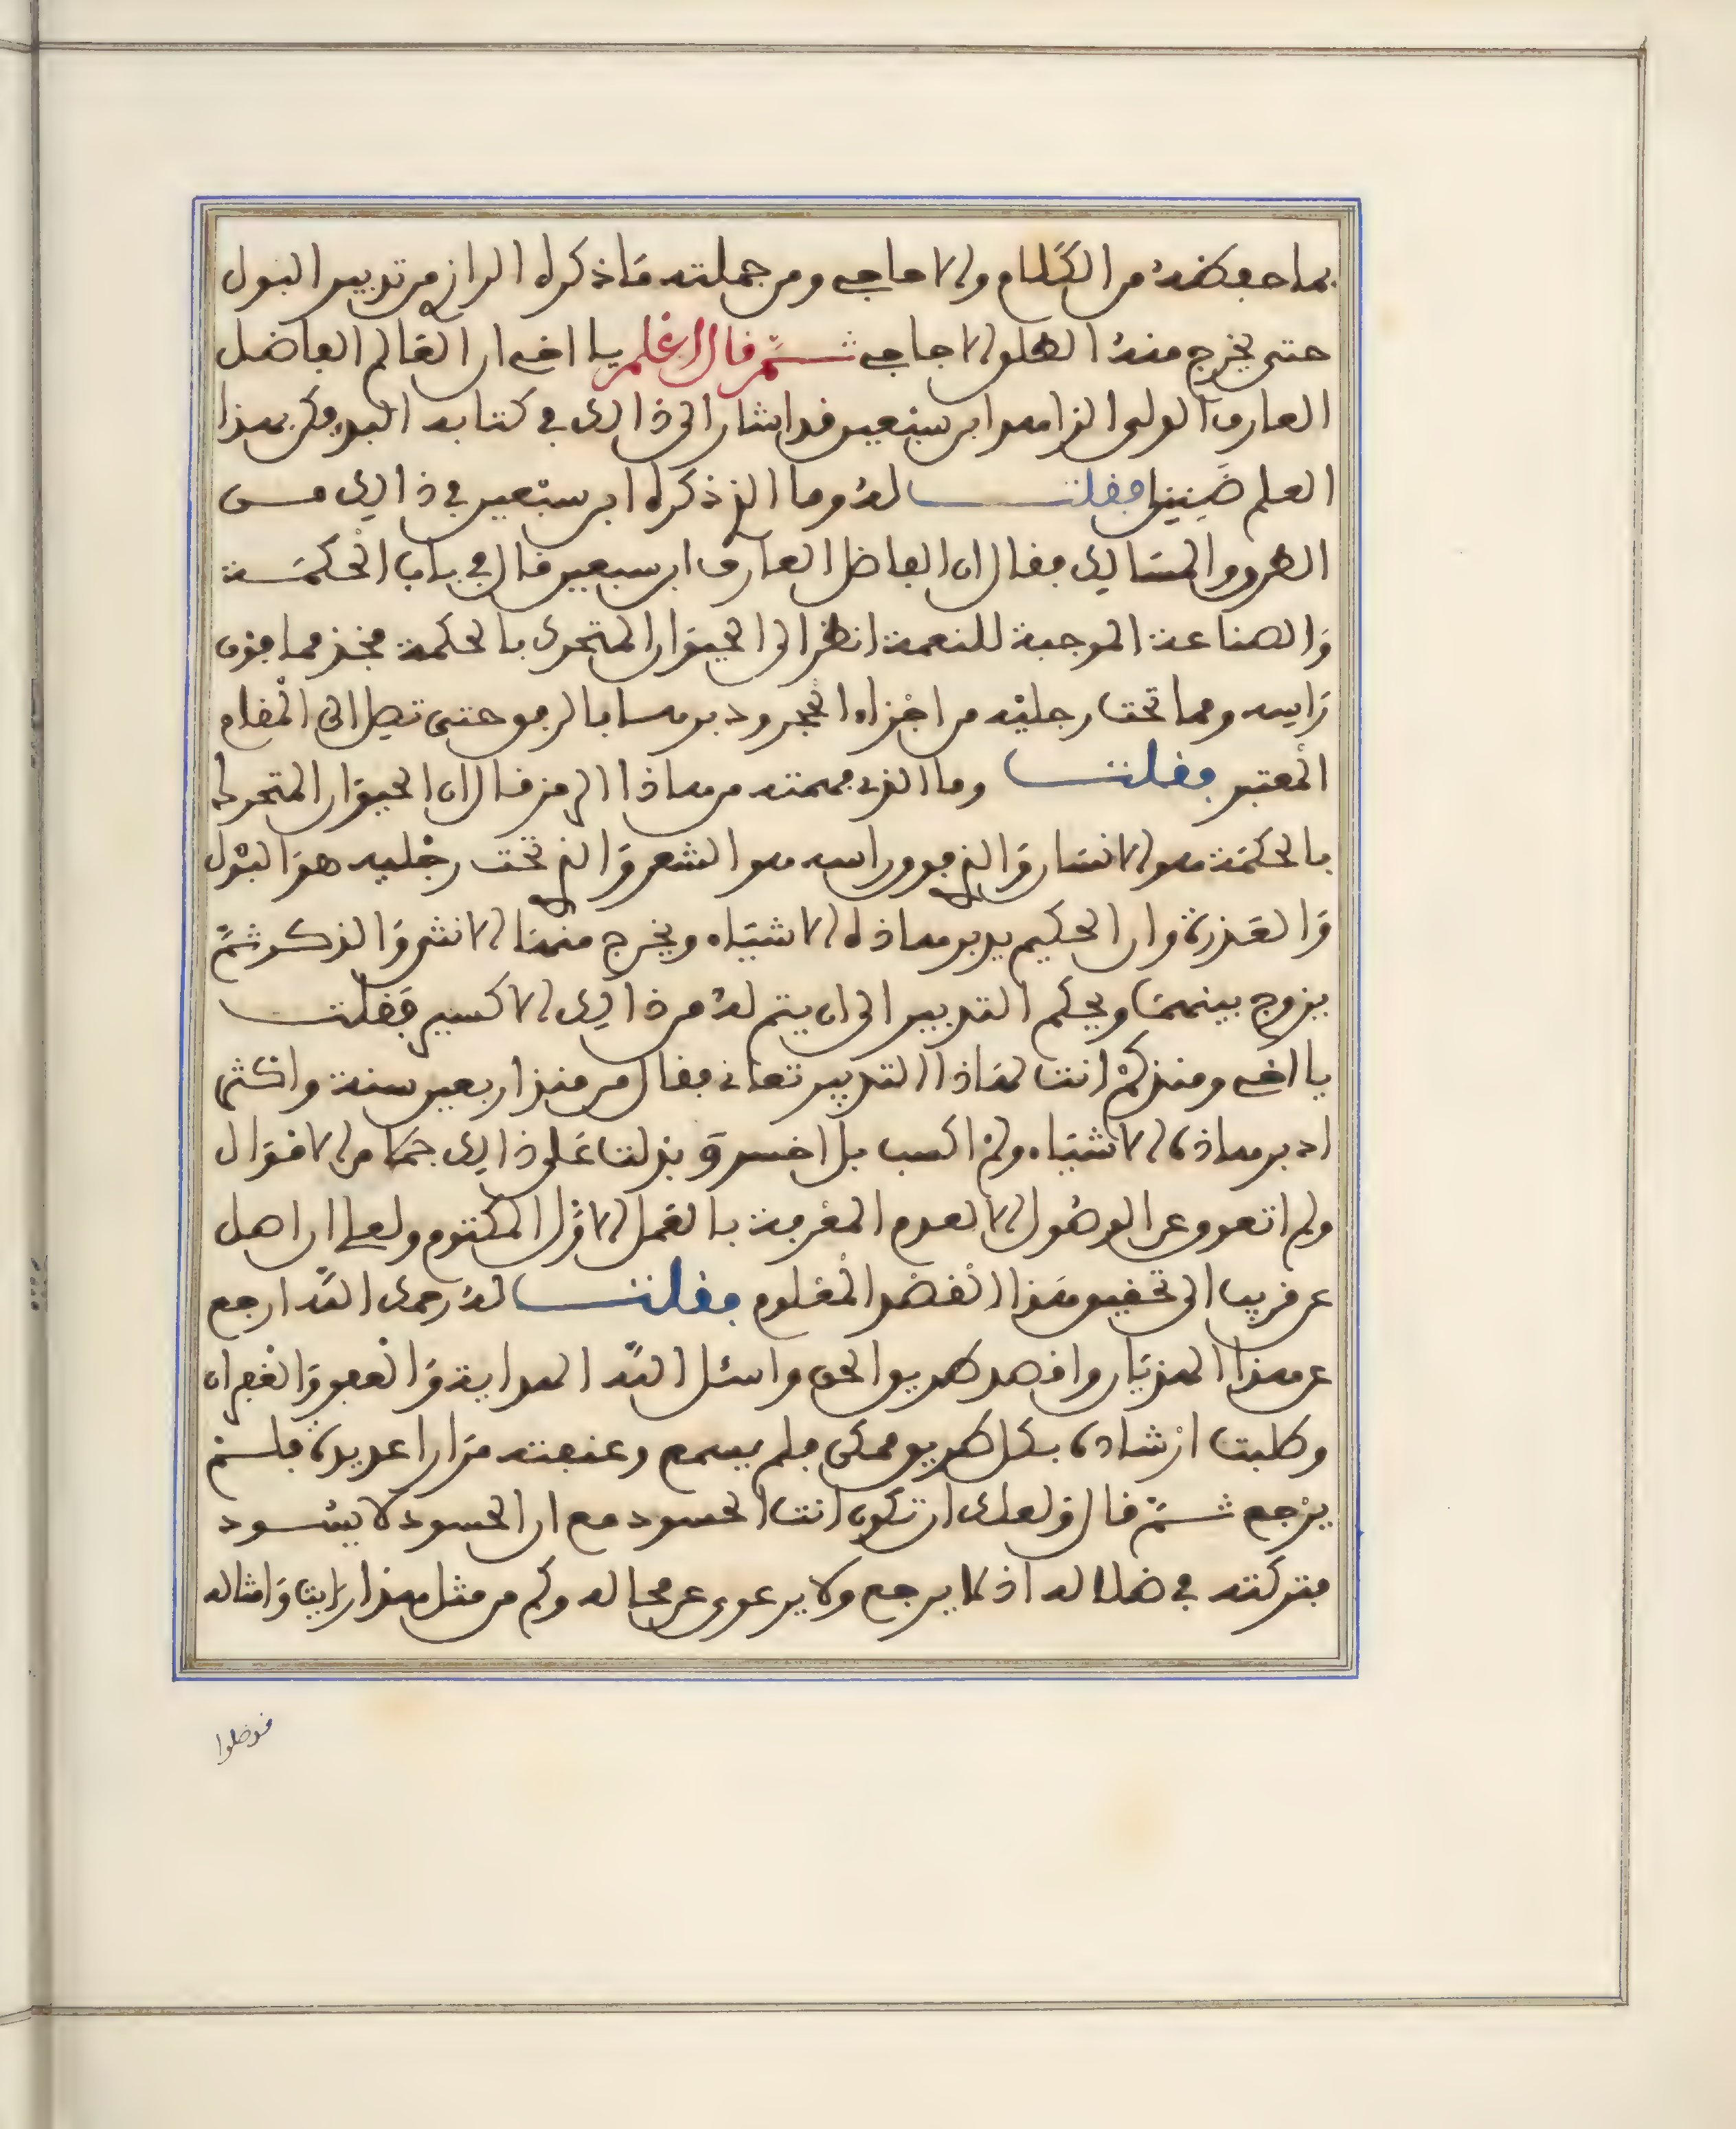 بما حفظه من الكلام والاحاجي ومن جملته ما ذكره الرازي من تدبير البول
حتى يخرج منه الصلو الاجاجي ثـم قال اعلم يا اخي ان العالم الفاضل
العارف الولي الزاهد ابن سبعين قد اشار الى ذالك في كتابه البد وكن بهذا
العلم ضنينا فقلت له وما الذي ذكره ابن سبعين في ذالك مـن
الطرق والمسالك فقال ان الفاضل العارف ابن سبعين قال في باب الحكمـة
والصناعة الموجبة للنعمة انظر الى الحيوان المتحرك بالحكمة فخذ مما فوق
رأسه ومما تحت رجليه من اجزاء الحجر ودبرها بالرفق حتى تصل الى المقام
المعتبر فقلت وما الذي فهمته من هاذا الرمز فقال ان الحيوان المتحرك
بالحكمة هو الانسان والذي فوق راسه هو الشعر والذي تحت رجليه هو البول
والعذرة وان الحكيم يدبر هاذه الاشياء ويخرج منها الانثى والذكر ثم
يزوج بينهما ويحكم التدبير الى ان يتم له من ذالك الاكسير فقلت
يا اخي ومنذ كم انت لهاذا التدبير تعاني فقال من منذ اربعين سنة واكثر
ادبر هاذه الاشياء ولم اكسب بل اخسر وبذلت على ذالك جمًا من الاموال
ولم اتعوق عن الوصول الا لعدم المعرفة بالعمل الاول المكتوم ولعلي ان اصل
عن قريب الى تحقيق هذا القصد المعلوم فقلت له رحمك الله ارجع
عن هذا الهذيان واقصد طريق الحق واسئل الله الهداية والعفو والغفران
وطلبت ارشاده بكل طريق ممكن فلم يسمع وعنفته مرارا عديدة فلـم
يرجع ثـم قال ولعلك ان تكون انت الحسود مع ان الحسود لا يسـود
فتركته في ضلاله اذ لا يرجع ولا يرعوي عن محاله وكم من مثل هذا رايت وامثاله